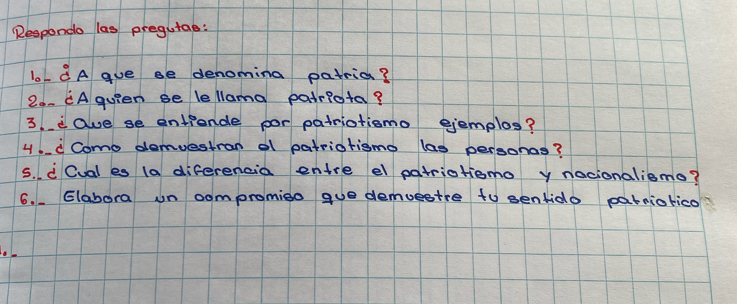 Respondo las pregutas:
1.- ¿A que se denomina patria?
2.- ¿A quien se le llama patriota?
3.- ¿Que se entiende por patriotismo ejemplos?
4.- ¿Como demuestran el patriotismo las personas?
5.- ¿Cual es la diferencia entre el patriotismo y nacionalismo?
6.- Elabora un compromiso que demuestre tu sentido patriotico
1.-